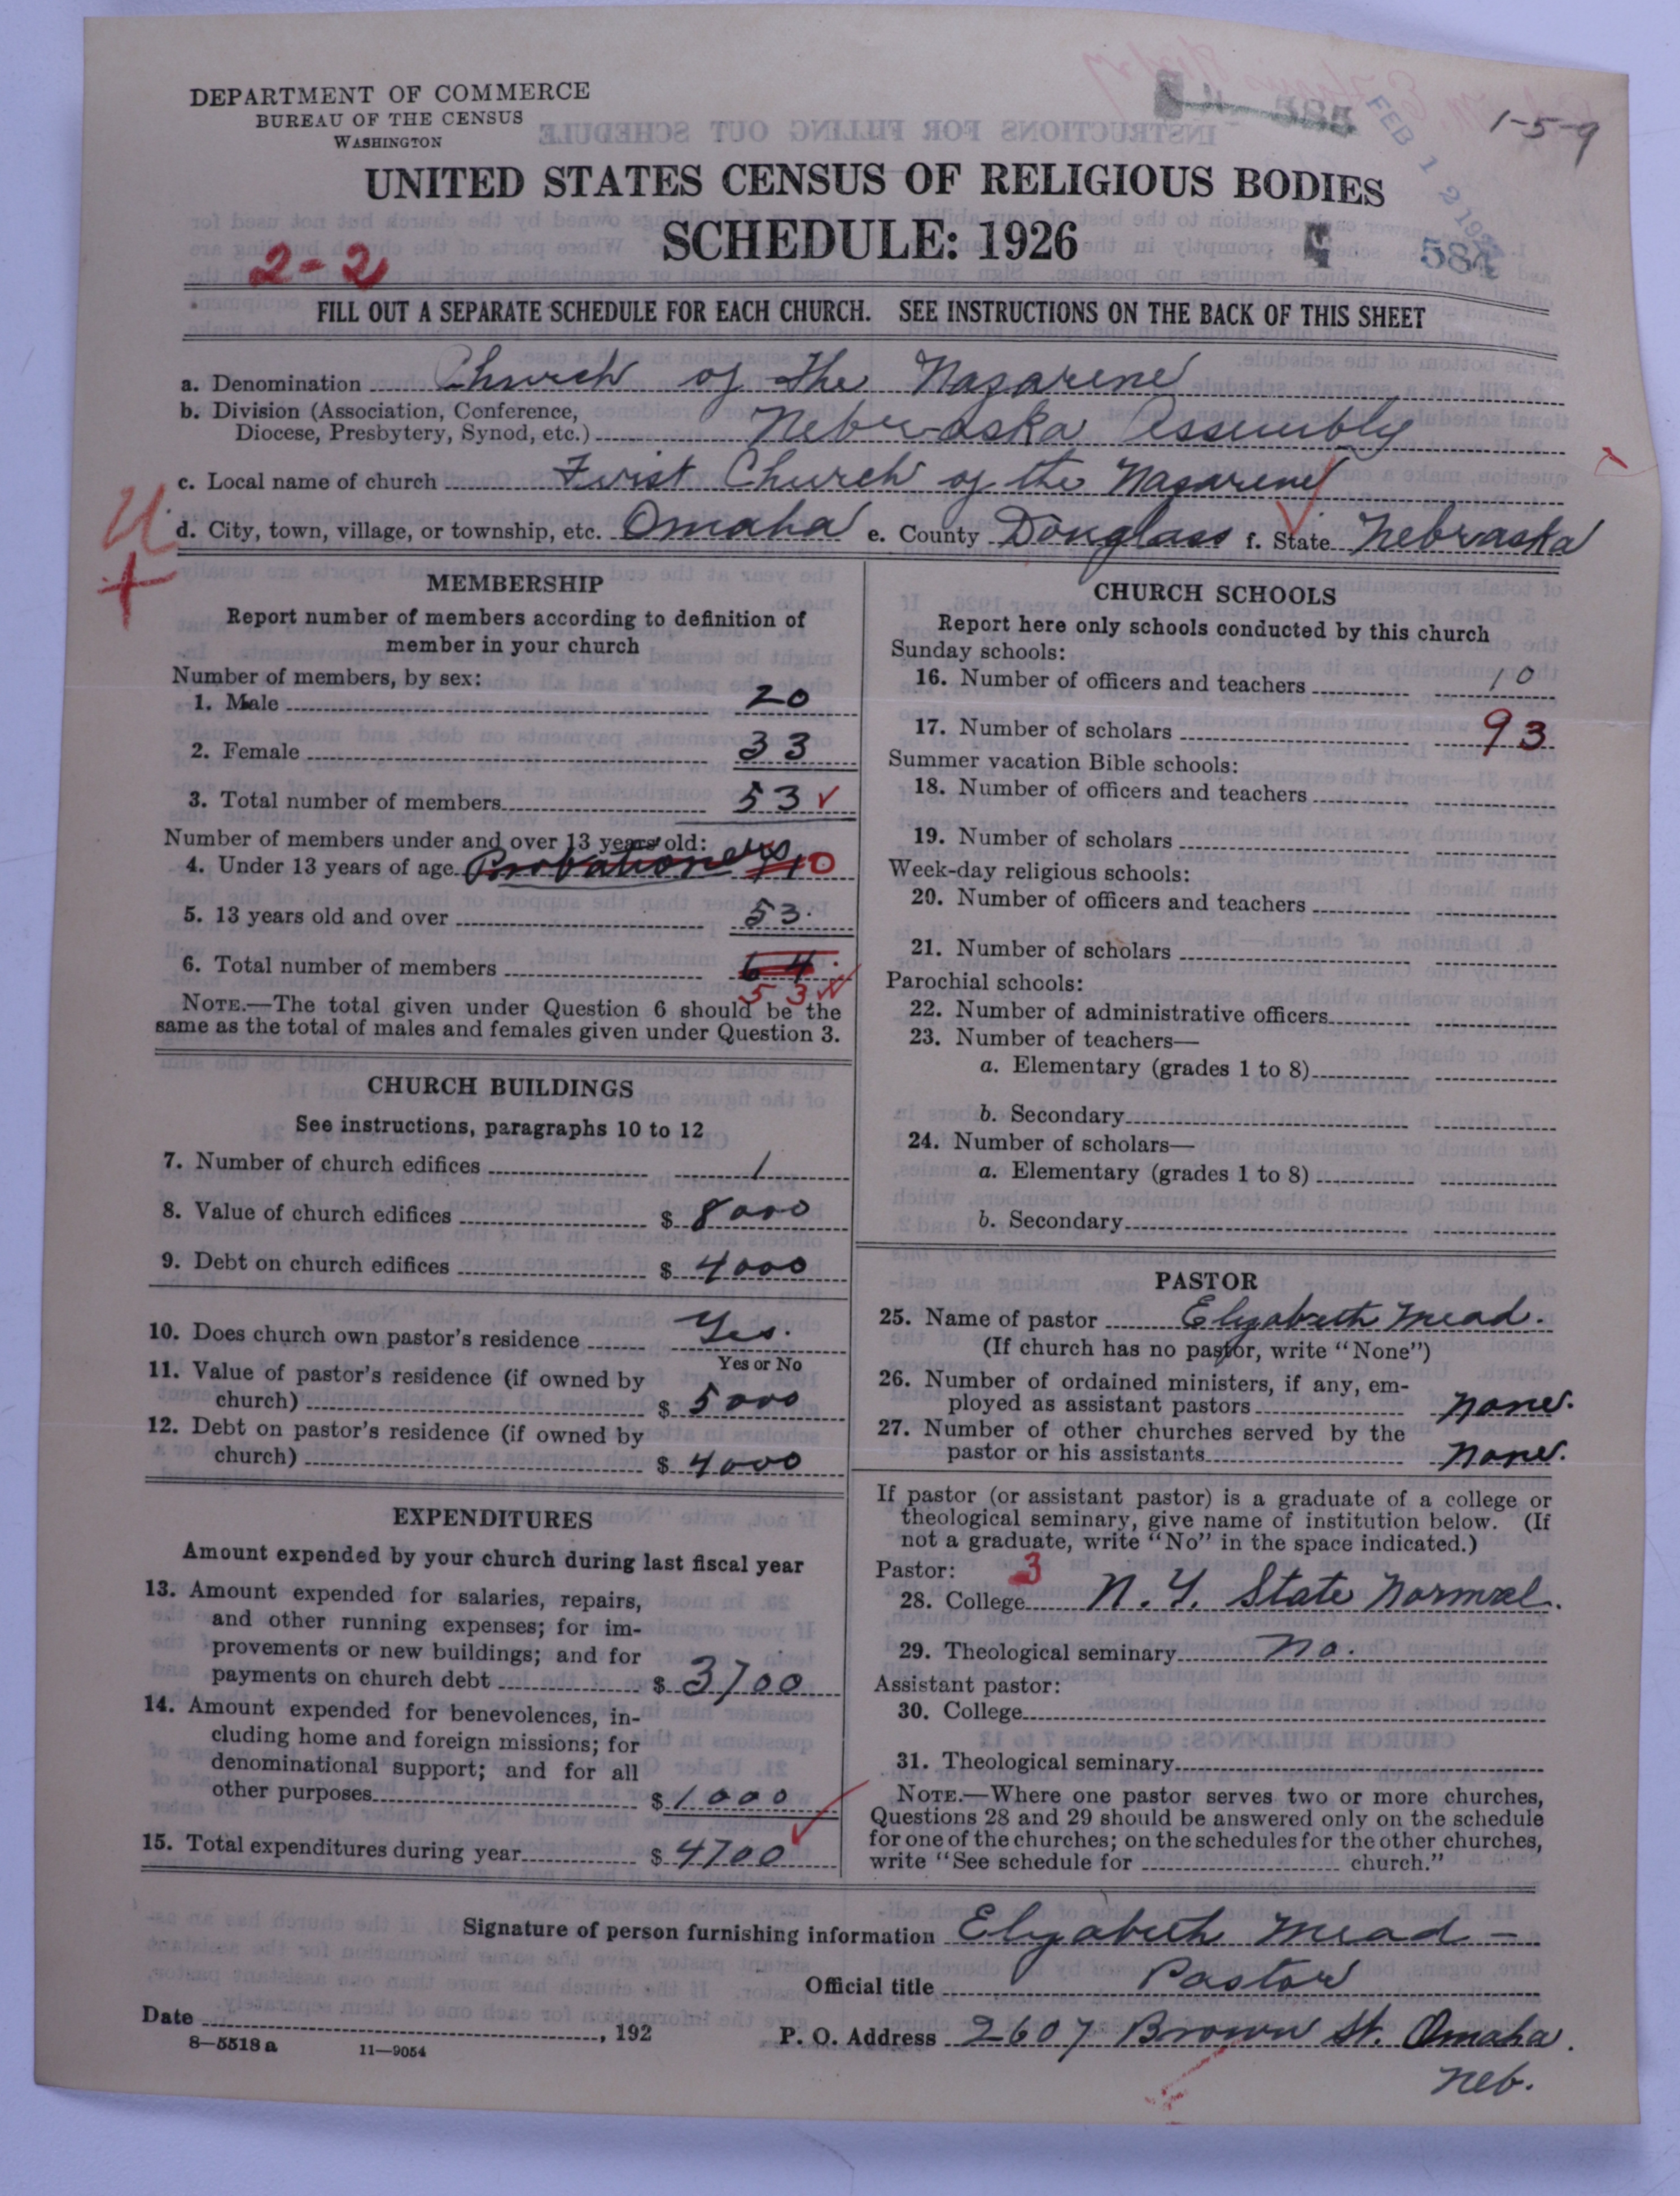 DEPARTMENT OF COMMERCE
BUREAU OF THE CENSUS
WASHINGTON
1-5-9
FEB 12 192
UNITED STATES CENSUS OF RELIGIOUS BODIES
SCHEDULE: 1926
4 584
2-2
FILL OUT A SEPARATE SCHEDULE FOR EACH CHURCH. SEE INSTRUCTIONS ON THE BACK OF THIS SHEET
a. Denomination Church of the Nazarene
b. Division (Association, Conference,
Diocese, Presbytery, Synod, etc.) Nebraska Assembly
c. Local name of church First Church of the Nazarene
d. City, town, village, or township, etc. Omaha e. County Douglass f. State Nebraska
MEMBERSHIP
Report number of members according to definition of
member in your church
Number of members, by sex:
1. Male 20
2. Female 33
3. Total number of members 53
Number of members under and over 13 years old:
4. Under 13 years of age Probationers 0
5. 13 years old and over 53.
6. Total number of members 64
53
NOTE.—The total given under Question 6 should be the
same as the total of males and females given under Question 3.
CHURCH BUILDINGS
See instructions, paragraphs 10 to 12
7. Number of church edifices 1
8. Value of church edifices $ 8000
9. Debt on church edifices $ 4000
10. Does church own pastor's residence Yes.
Yes or No
11. Value of pastor's residence (if owned by
church) $ 5000
12. Debt on pastor's residence (if owned by
church) $ 4000
EXPENDITURES
Amount expended by your church during last fiscal year
13. Amount expended for salaries, repairs,
and other running expenses; for im-
provements or new buildings; and for
payments on church debt $ 3700
14. Amount expended for benevolences, in-
cluding home and foreign missions; for
denominational support; and for all
other purposes $ 1000
15. Total expenditures during year $ 4700
CHURCH SCHOOLS
Report here only schools conducted by this church
Sunday schools:
16. Number of officers and teachers 10
17. Number of scholars 93
Summer vacation Bible schools:
18. Number of officers and teachers
19. Number of scholars
Week-day religious schools:
20. Number of officers and teachers
21. Number of scholars
Parochial schools:
22. Number of administrative officers
23. Number of teachers—
a. Elementary (grades 1 to 8)
b. Secondary
24. Number of scholars—
a. Elementary (grades 1 to 8)
b. Secondary
PASTOR
25. Name of pastor Elizabeth Mead.
(If church has no pastor, write "None")
26. Number of ordained ministers, if any, em-
ployed as assistant pastors none.
27. Number of other churches served by the
pastor or his assistants none.
If pastor (or assistant pastor) is a graduate of a college or
theological seminary, give name of institution below. (If
not a graduate, write "No" in the space indicated.)
Pastor: 3
28. College N. Y. State Normal.
29. Theological seminary no.
Assistant pastor:
30. College
31. Theological seminary
NOTE.—Where one pastor serves two or more churches,
Questions 28 and 29 should be answered only on the schedule
for one of the churches; on the schedules for the other churches,
write "See schedule for church."
Signature of person furnishing information Elizabeth Mead -
Official title Pastor
Date , 192
P. O. Address 2607 Brown St. Omaha.
Neb.
8—5518 a 11—9054